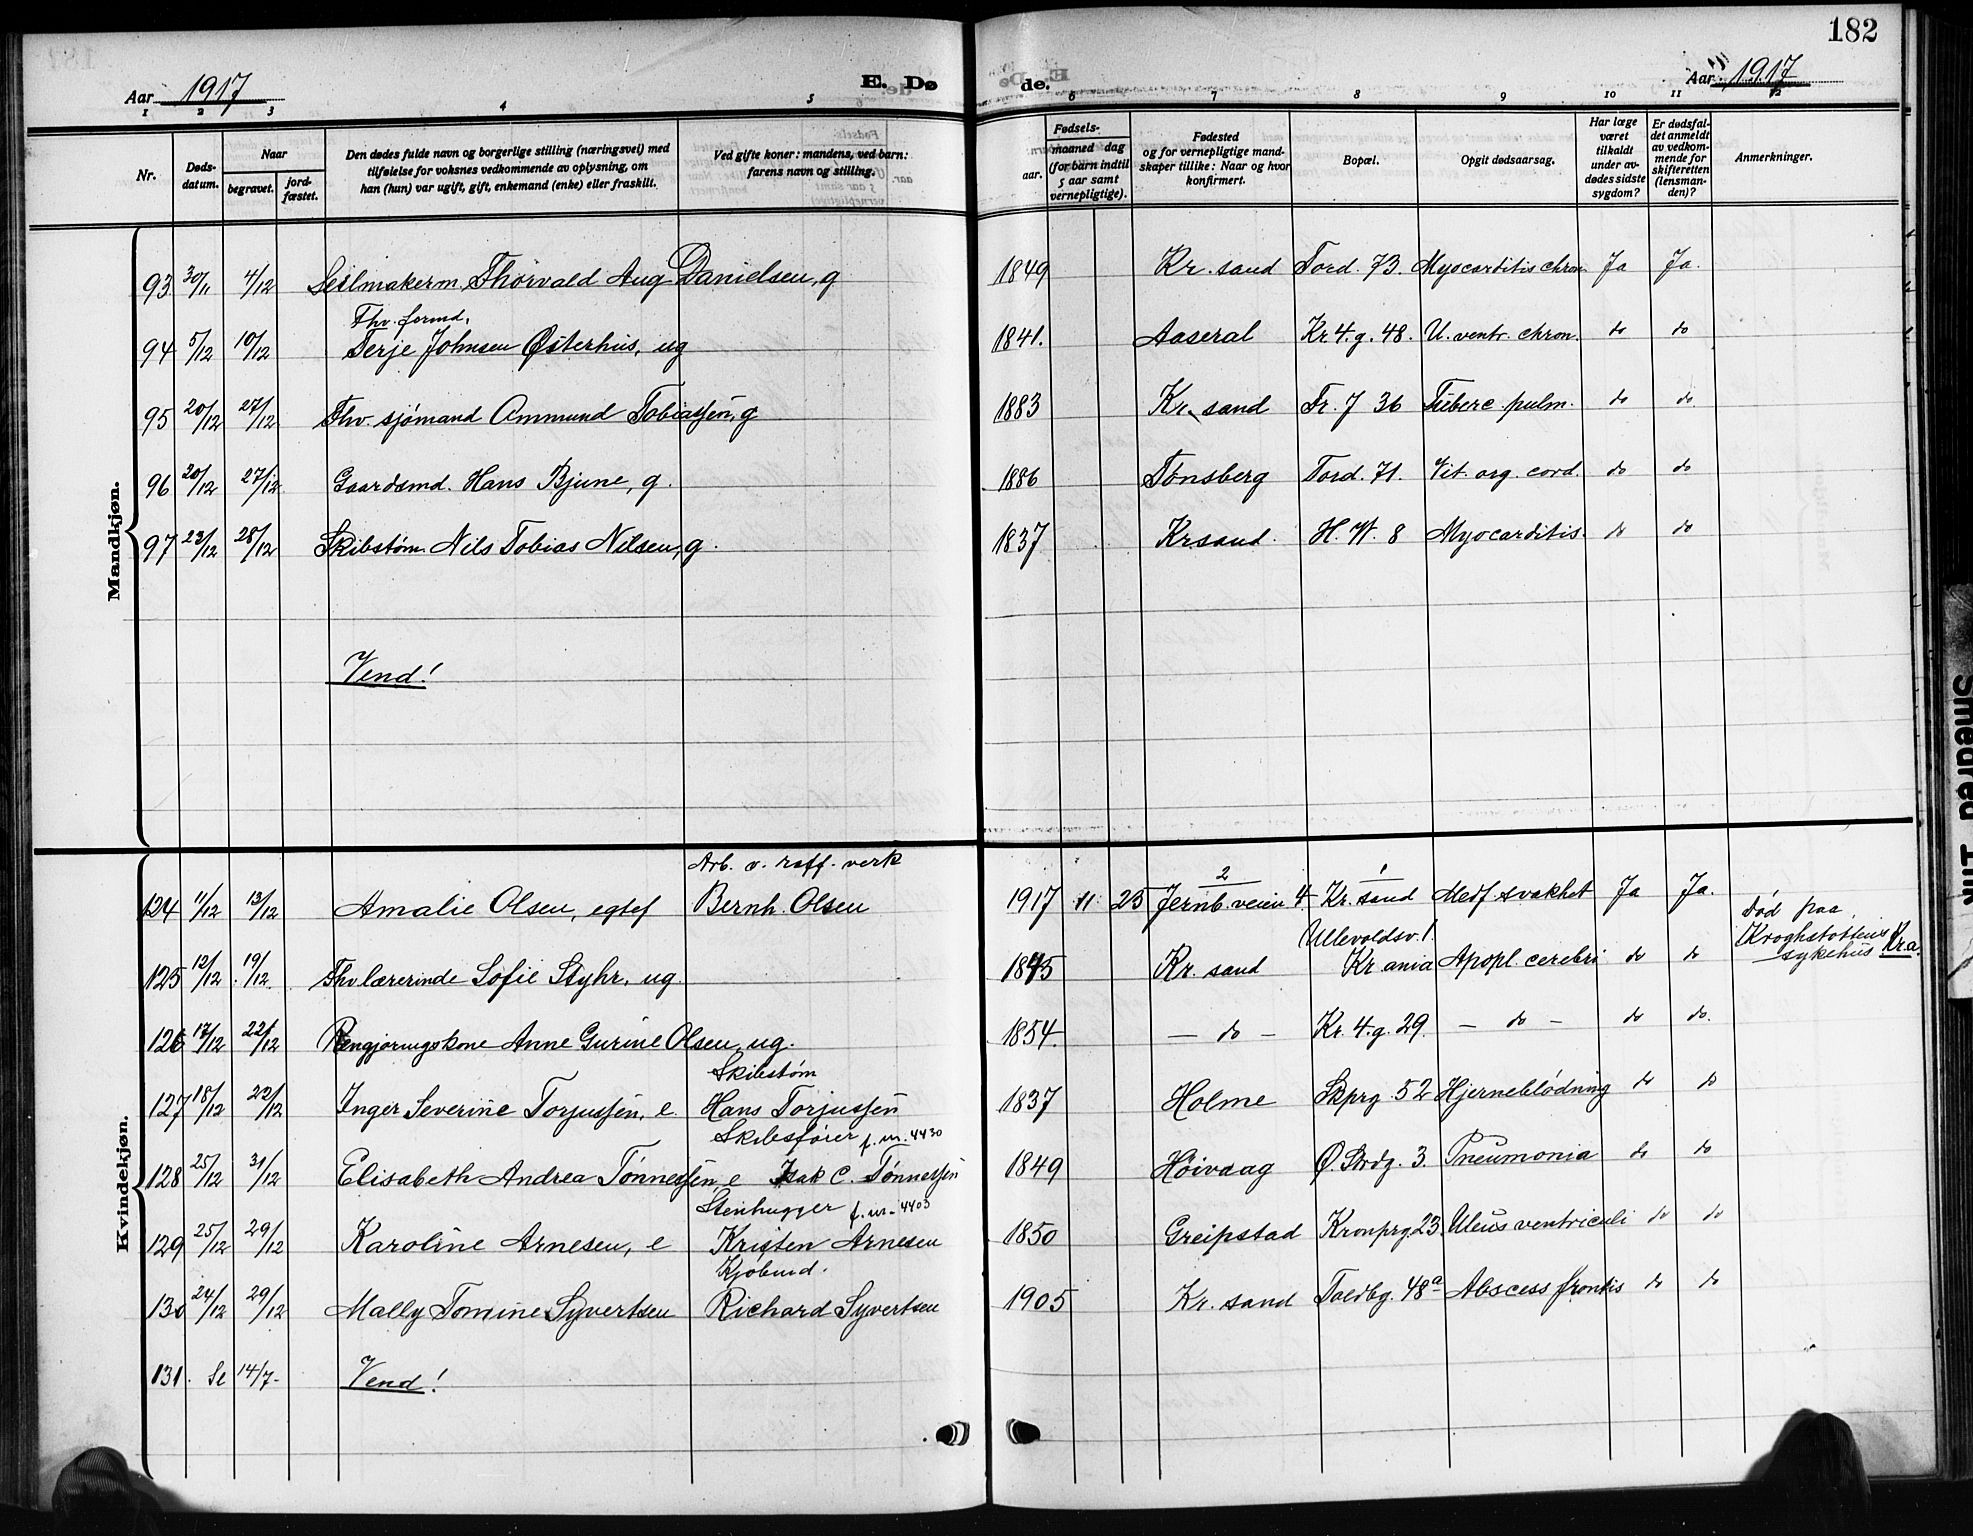 182
Aar 1917 E. Dø
de. Aar 1917
1 2 3 4 5 6 7 8 9 10 11 12
Nr. Døds-datum. Naar begravet. jord-fæstet. Den dødes fulde navn og borgerlige stilling (næringsvei) med tilføielse for voksnes vedkommende av oplysning, om han (hun) var ugift, gift, enkemand (enke) eller fraskilt. Ved gifte koner: mandens, ved barn: farens navn og stilling.
aar. Fødsels- maaned dag (for barn indtil 5 aar samt vernepligtige). Fødested og for vernepligtige mand-skaper tillike: Naar og hvor konfirmert. Bopæl. Opgit dødsaarsag. Har læge været tilkaldt under av-dødes sidste sygdom? Er dødsfal-det anmeldt av vedkom-mende for skifteretten (lensman-den)? Anmerkninger.
Mandkjøn.
93. 30/11 4/12 Seilmakerm. Thorvald Aug Danielsen, g 1849 Kr. sand Tord. 73. Myocarditis chron. Ja Ja.
Fhv. formd.
94 5/12 10/12 Terje Johnsen Østerhus, ug 1841. Aaseral Kr. 4. g. 48. U. ventr. chron. do do
95 20/12 27/12 Fhv. sjömand Ommund Tobiassen, g 1883 Kr. sand Fr. 7 36 Tuberc pulm. do do
96 20/12 27/12 Gaardsmd. Hans Bjune, g. 1886 Tønsberg Tord. 71. Vit. org. cord. do do
97 23/12 28/12 Skibstøm. Nils Tobias Nilsen, g. 1837 Krsand. H. W. 8 Myocarditis. do do
Vend!
Kvindekjøn.
Arb. v. raff. verk
2 1
124 11/12 13/12 Amalie Olsen, egtef Bernh. Olsen 1917 11 23 Jernb. veien 4. Kr. sand Medf svakhet Ja Ja.
Ullevoldsv. 1. død paa Kroghstøttens sykehus Kr.a.
125 12/12 19/12 Fhv lærerinde Sofie Styhr, ug. 1845 Kr. sand Kr ania Apopl. cerebri do do
126 17/12 22/12 Rengjøringskone Anne Gurine Olsen, ug. 1854. — do — Kr. 4. g. 29. — do — do do.
Skibstøm
127 18/12 22/12 Inger Severine Torjussen, e. Hans Torjussen 1837 Holme Skprg. 52 Hjerneblödning do do
Skibsfører f. nr. 4430
128 25/12 31/12 Elisabeth Andrea Tønnessen, e Isak C. Tønnessen 1849 Höivaag Ø. Strdg. 3. Pneumonia do do
Stenhugger f. nr. 4403
129 25/12 29/12 Karoline Arnesen, e Kristen Arnesen 1850 Greipstad Kronprg. 23. Ulcus ventriculi do do
Kjøbmd.
130 24/12 29/12 Mally Tomine Syvertsen Richard Syvertsen 1905 Kr. sand Toldbg. 48a Abscess frontis do do
131. Se 14/7- Vend!